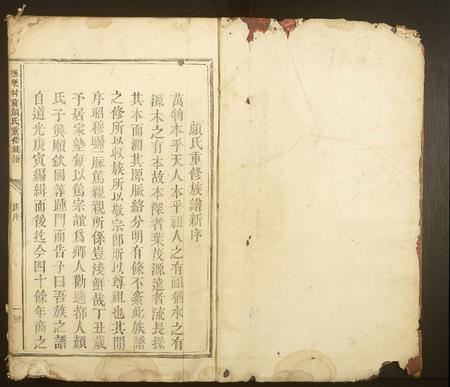 顏氏重修族譜新序
萬物本乎天人本乎祖人之有祖猶水之有
源木之有本故本深者葉茂源遠者流長探
其本而溯其源脈絡分明有條不紊此族譜
之修所以收族所以敬宗即所以尊祖也其間
序昭穆聯一脈篤親親所係豈淺鮮哉丁丑歲
予居家塾每以篤宗誼爲鄉人勸適都人顏
氏子興順欽國等踵門而告予曰吾族之譜
自道光庚寅編緝而後迄今四十餘年商之
村前顏氏重修族譜
序
一